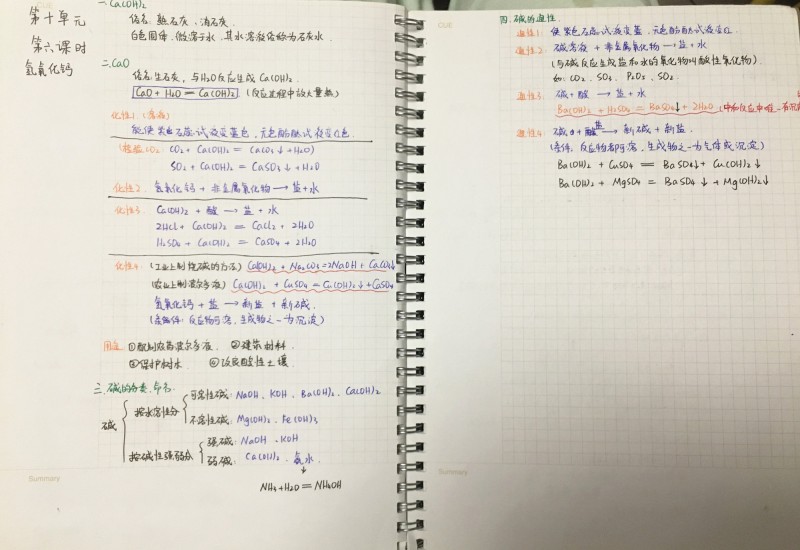 第十单元
第六课时
氢氧化钙
一.Ca(OH)2
俗名:熟石灰,消石灰.
白色固体.微溶于水.其水溶液俗称为石灰水.
二.CaO
俗名:生石灰,与H2O反应生成Ca(OH)2.
CaO + H2O = Ca(OH)2 (反应过程中放大量热)
化性1.(溶液)
能使紫色石蕊试液变蓝色,无色酚酞试液变红色.
(检验CO2) CO2 + Ca(OH)2 = CaCO3↓ + H2O
SO2 + Ca(OH)2 = CaSO3↓ + H2O
化性2. 氢氧化钙 + 非金属氧化物 → 盐+水
化性3. Ca(OH)2 + 酸 → 盐 + 水
2HCl + Ca(OH)2 = CaCl2 + 2H2O
H2SO4 + Ca(OH)2 = CaSO4 + 2H2O
化性4. (工业上制烧碱的方法) Ca(OH)2 + Na2CO3=2NaOH + CaCO3↓
(农业上制波尔多液) Ca(OH)2 + CuSO4 = Cu(OH)2↓+CaSO4
氢氧化钙 + 盐 → 新盐 + 新碱.
(条件:反应物可溶,生成物之一为沉淀)
用途 ①配制农药波尔多液. ②建筑材料.
③保护树木. ④改良酸性土壤.
三.碱的分类.命名.
碱
按水溶性分
可溶性碱:NaOH、KOH、Ba(OH)2、Ca(OH)2
不溶性碱:Mg(OH)2、Fe(OH)3
按碱性强弱分
强碱:NaOH、KOH
弱碱:Ca(OH)2、氨水.
↓
NH3+H2O=NH4OH
Summary
四.碱的通性.
通性1: 使紫色石蕊试液变蓝,无色酚酞试液变红.
通性2 碱溶液 + 非金属氧化物 → 盐+水
(与碱反应生成盐和水的氧化物叫酸性氧化物).
如:CO2、SO3、P2O5、SO2.
通性3: 碱+酸 → 盐+水
Ba(OH)2 + H2SO4 = BaSO4↓ + 2H2O
通性4: 碱+盐 → 新碱+新盐.
(条件:反应物都可溶,生成物之一为气体或沉淀)
Ba(OH)2 + CuSO4 = BaSO4↓ + Cu(OH)2↓
Ba(OH)2 + MgSO4 = BaSO4↓ + Mg(OH)2↓
Summary